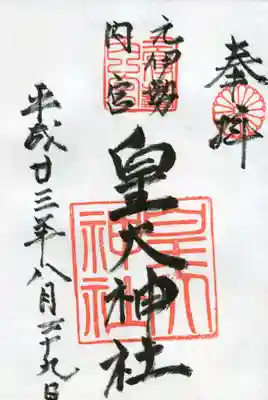 奉拝
元伊勢
内宮
皇大神社
皇大
神社
平成廿三年八月二十九日